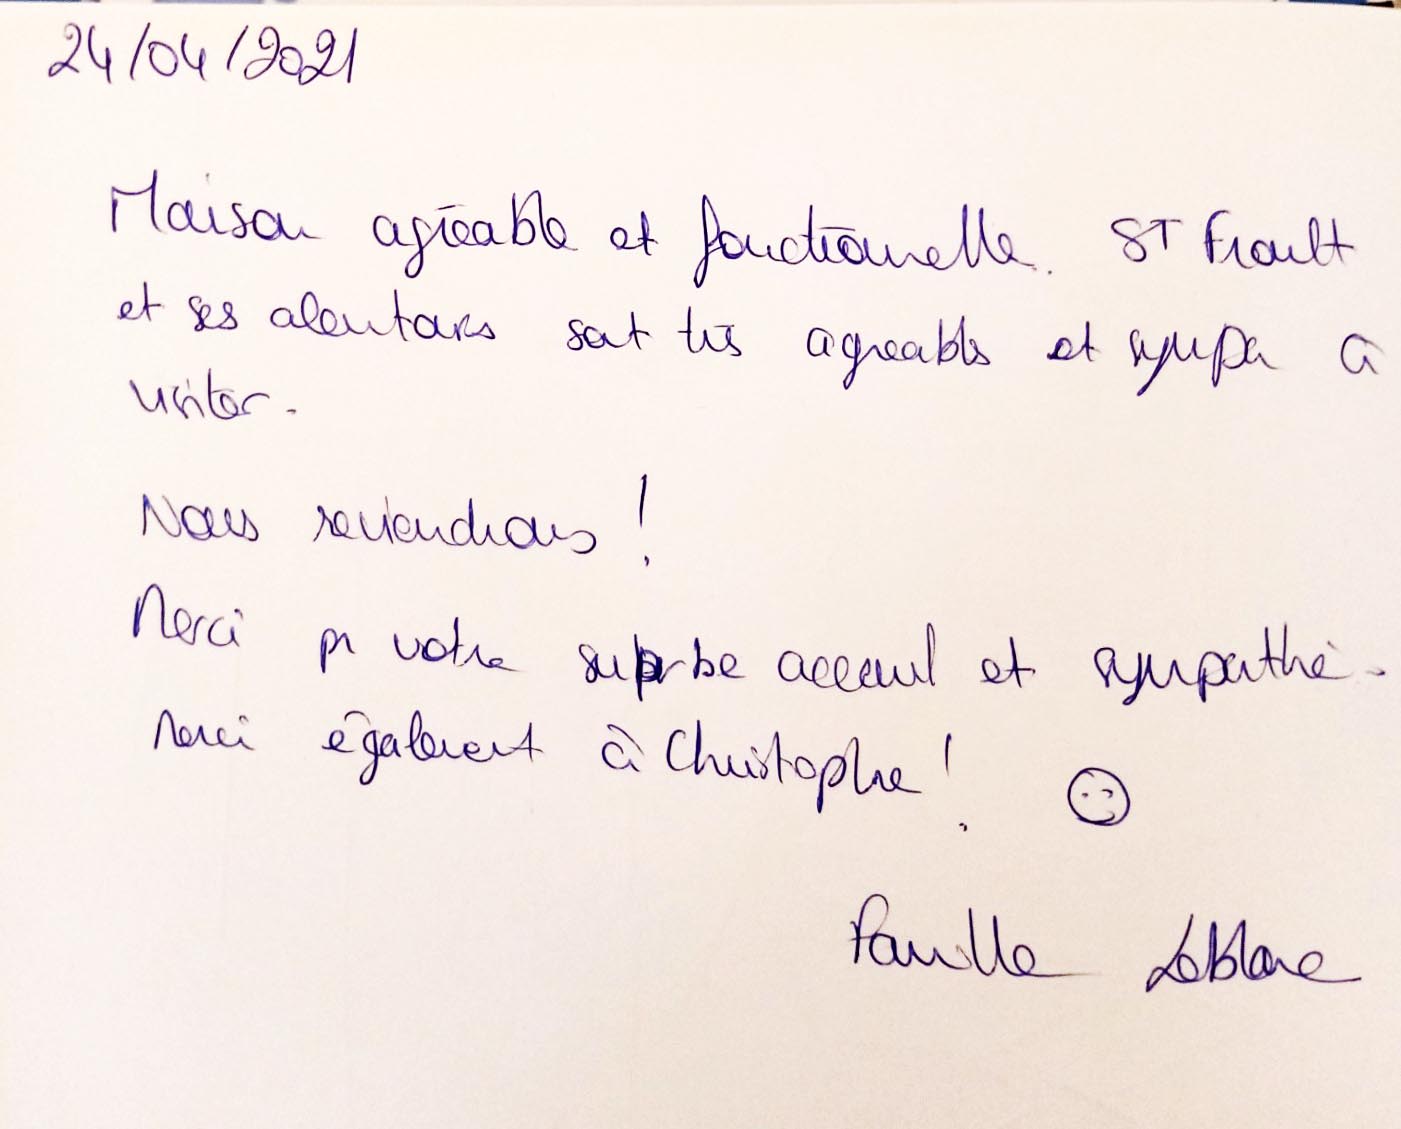 24/04/2021
Maison agréable et fonctionnelle. ST Froult
et ses alentours sont très agréables et sympa à
visiter.
Nous reviendrons !
Merci pr votre superbe acceuil et sympathie.
Merci également à Christophe ! ☺
Famille Leblanc